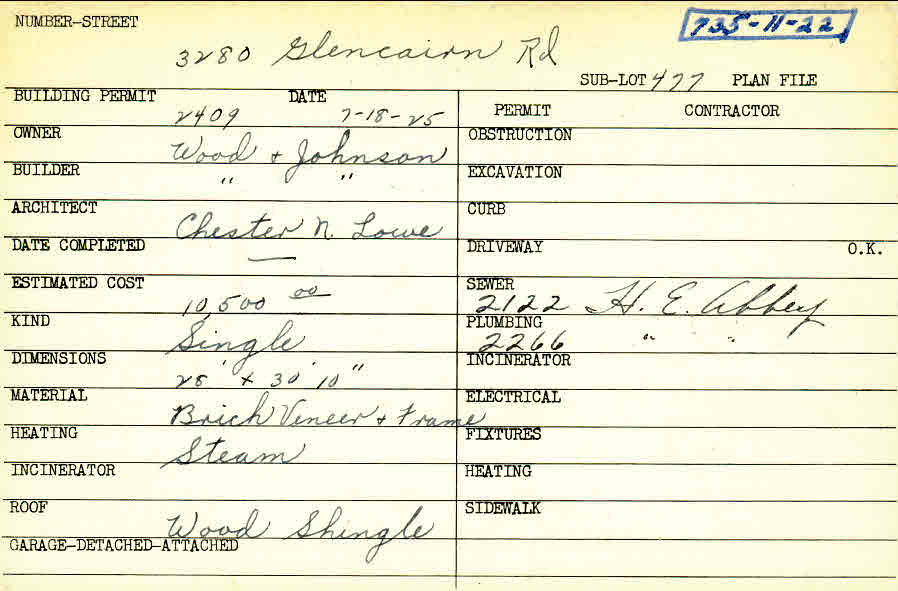 NUMBER-STREET
735-11-22
3280 Glencairn Rd
SUB-LOT 477 PLAN FILE
BUILDING PERMIT DATE
2409 7-18-25
PERMIT CONTRACTOR
OWNER
Wood & Johnson
OBSTRUCTION
BUILDER
" "
EXCAVATION
ARCHITECT
Chester N. Lowe
CURB
DATE COMPLETED
—
DRIVEWAY O.K.
ESTIMATED COST
10,500 00
SEWER
2122 H. E. Abbey
KIND
Single
PLUMBING
2266 " "
DIMENSIONS
28' x 30' 10"
INCINERATOR
MATERIAL
Brick Veneer & Frame
ELECTRICAL
HEATING
Steam
FIXTURES
INCINERATOR
HEATING
ROOF
Wood Shingle
SIDEWALK
GARAGE-DETACHED-ATTACHED